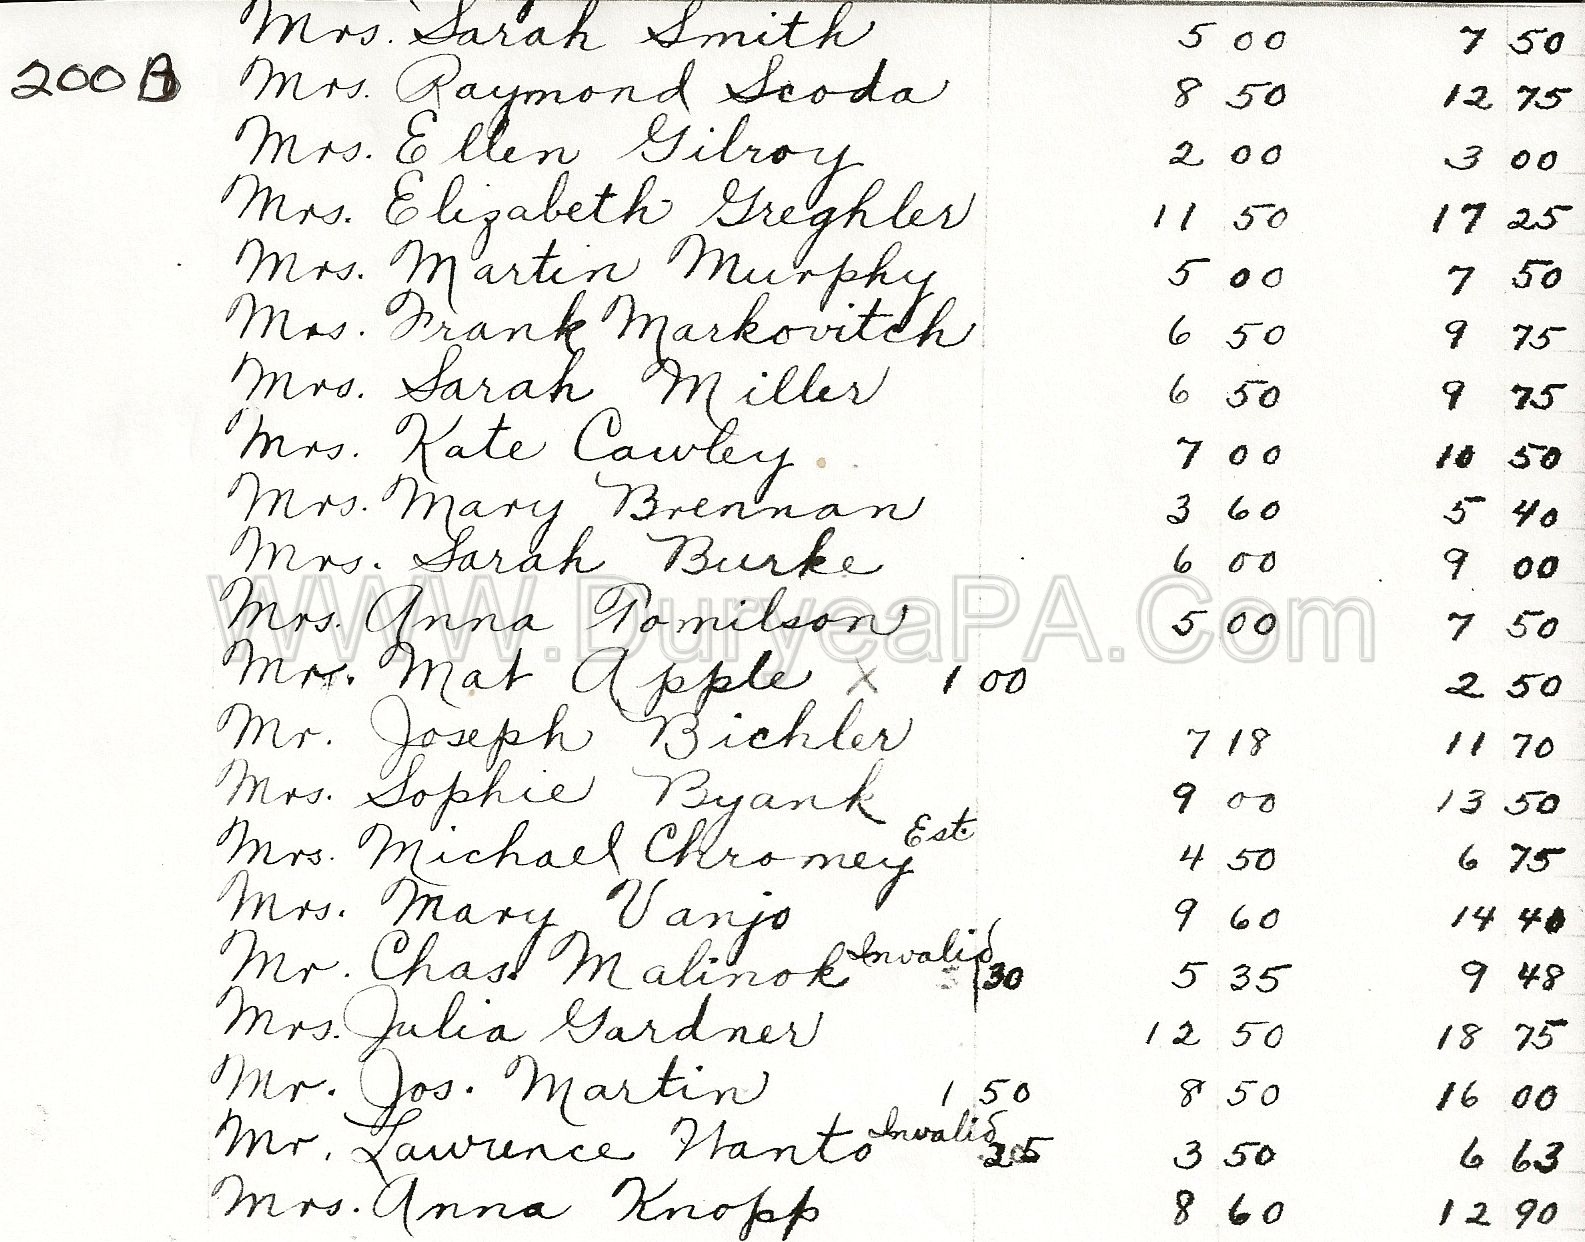 Mrs. Sarah Smith 5 00 7 50
200 Mrs. Raymond Scoda 8 50 12 75
Mrs. Ellen Gilroy 2 00 3 00
Mrs. Elizabeth Greghler 11 50 17 25
Mrs. Martin Murphy 5 00 7 50
Mrs. Frank Markovitch 6 50 9 75
Mrs. Sarah Miller 6 50 9 75
Mrs. Kate Cawley 7 00 10 50
Mrs. Mary Brennan 3 60 5 40
Mrs. Sarah Burke 6 00 9 00
WWW.DuryeaPA.Com
Mrs. Anna Tomilson 5 00 7 50
Mr. Mat Apple X 1 00 2 50
Mr. Joseph Bichler 7 18 11 70
Mrs. Sophie Byank 9 00 13 50
Mrs. Michael Chromey Est 4 50 6 75
Mrs. Mary Vanjo 9 60 14 40
Mr. Chas. Malinok Invalid 30 5 35 9 48
Mrs. Julia Gardner 12 50 18 75
Mr. Jos. Martin 1 50 8 50 16 00
Mr. Lawrence Wanto Invalid 25 3 50 6 63
Mrs. Anna Knopp 8 60 12 90